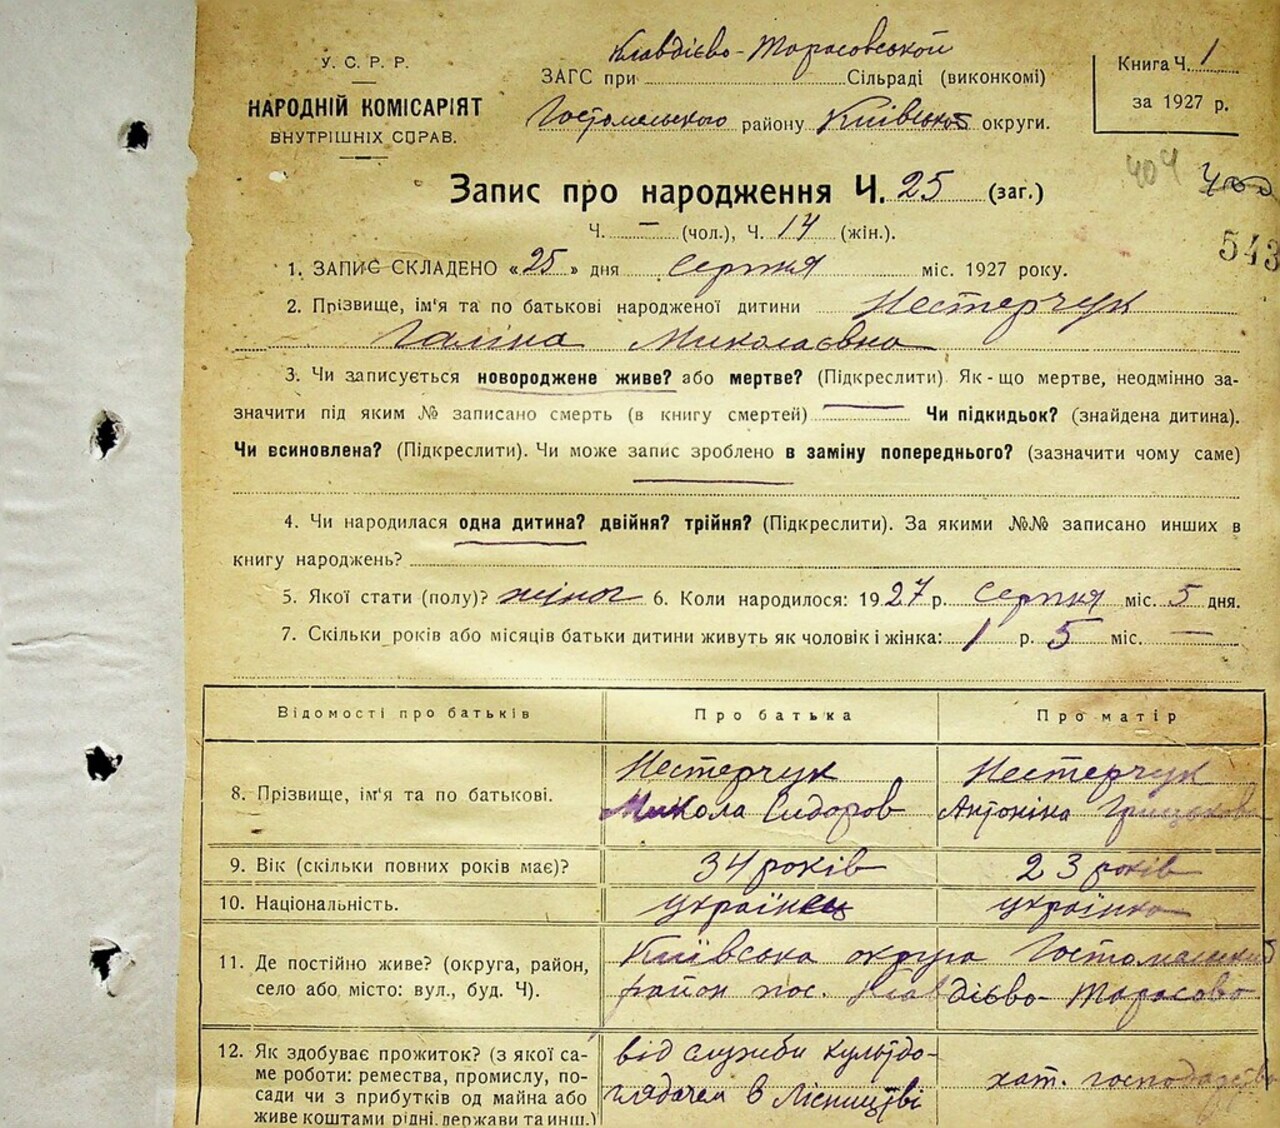 У. С. Р. Р.
НАРОДНІЙ КОМІСАРІЯТ
ВНУТРІШНІХ СПРАВ.
Клавдієво-Тарасовській
ЗАГС при Сільраді (виконкомі)
Гостомельського району Київської округи.
Книга Ч. 1
за 1927 р.
404
543
Запис про народження Ч. 25 (заг.)
Ч. — (чол.), Ч. 14 (жін.).
1. ЗАПИС СКЛАДЕНО «25» дня серпня міс. 1927 року.
2. Прізвище, ім'я та по батькові народженої дитини Нестерчук
Галіна Миколаєвна
3. Чи записується новороджене живе? або мертве? (Підкреслити) Як-що мертве, неодмінно за-
значити під яким № записано смерть (в книгу смертей) Чи підкидьок? (знайдена дитина).
Чи всиновлена? (Підкреслити). Чи може запис зроблено в заміну попереднього? (зазначити чому саме)
4. Чи народилася одна дитина? двійня? трійня? (Підкреслити). За якими №№ записано инших в
книгу народжень?
5. Якої стати (полу)? жіноч 6. Коли народилося: 1927 р. Серпня міс. 5 дня.
7. Скільки років або місяців батьки дитини живуть як чоловік і жінка: 1 р. 5 міс. —
Відомості про батьків Про батька Про матір
8. Прізвище, ім'я та по батькові.
Нестерчук
Микола Сидоров
Нестерчук
Антоніна Грицькова
9. Вік (скільки повних років має)? 34 років 23 років
10. Національність. українець українка
11. Де постійно живе? (округа, район,
село або місто: вул., буд. Ч).
Київська округа Гостомельский
район пос. Клавдієво-Тарасово
12. Як здобуває прожиток? (з якої са-
ме роботи: ремества, промислу, по-
сади чи з прибутків од майна або
живе коштами рідні, держави та инш.)
від служби культдо-
глядачем в Лісництві
хат. господарство